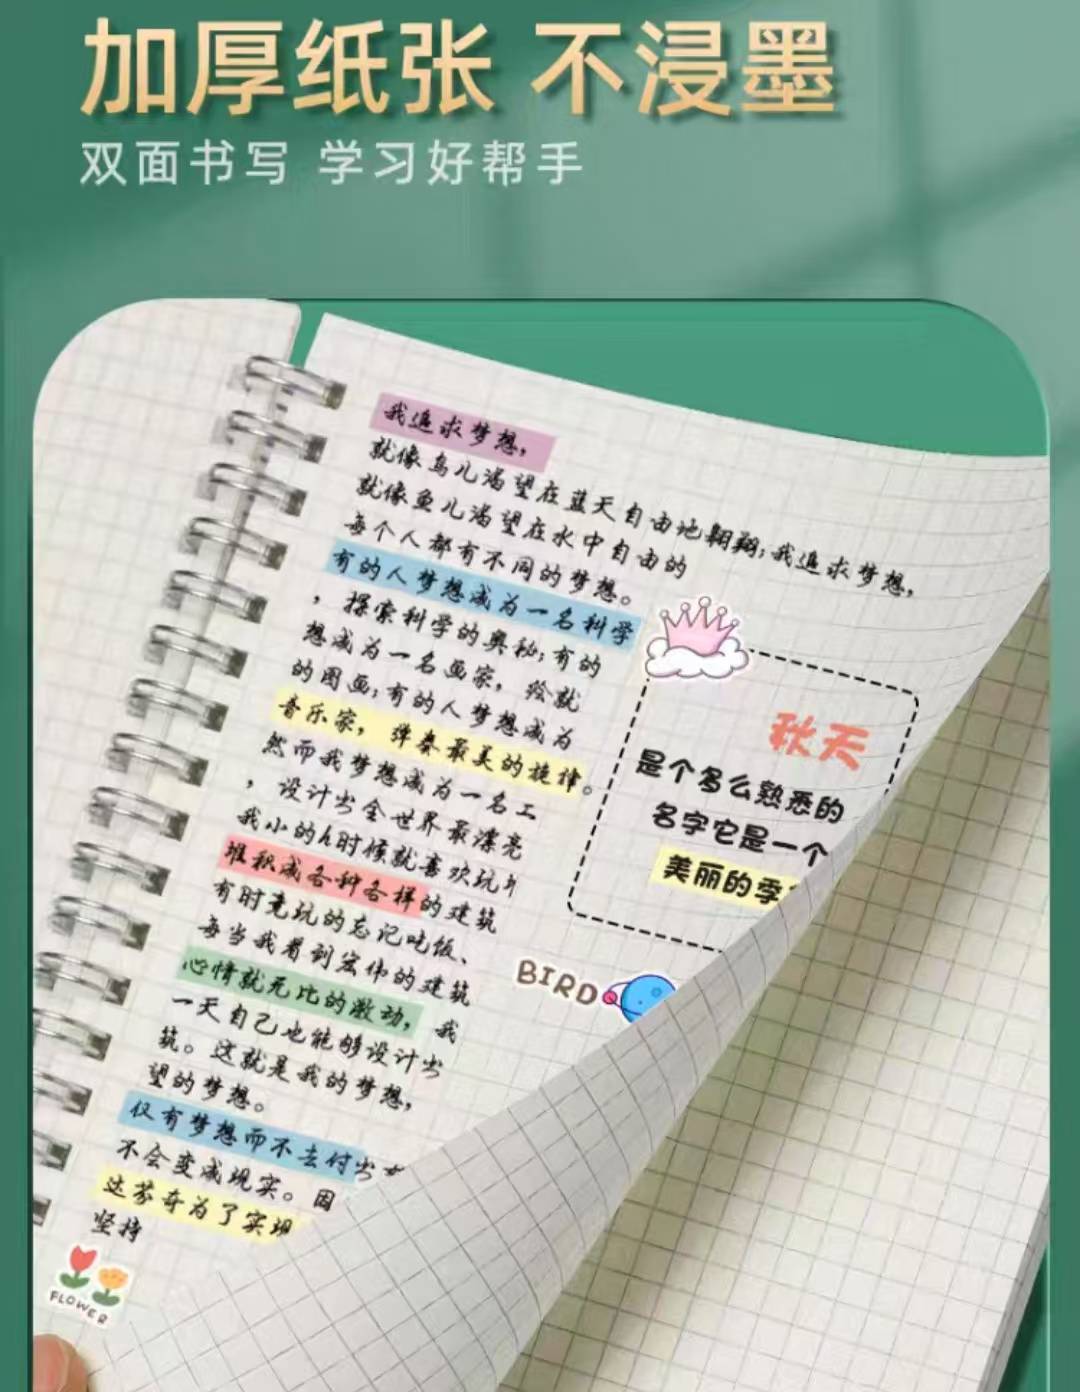 加厚纸张 不浸墨
双面书写 学习好帮手
我追求梦想，
就像鸟儿渴望在蓝天自由地翱翔；我追求梦想，
就像鱼儿渴望在水中自由的
每个人都有不同的梦想。
有的人梦想成为一名科学
，探索科学的奥秘；有的
想成为一名画家，绘就
的图画；有的人梦想成为
音乐家，弹奏最美的旋律。
然而我梦想成为一名工
，设计出全世界最漂亮
我小的时候就喜欢玩
堆积成各种各样的建筑
有时竟玩的忘记吃饭、
每当我看到宏伟的建筑
心情就无比的激动，我
一天自己也能够设计出
筑。这就是我的梦想，
望的梦想。
仅有梦想而不去付出
不会变成现实。因
达芬奇为了实现
坚持
秋天
是个多么熟悉的
名字它是一个
美丽的季
BIRD
FLOWER